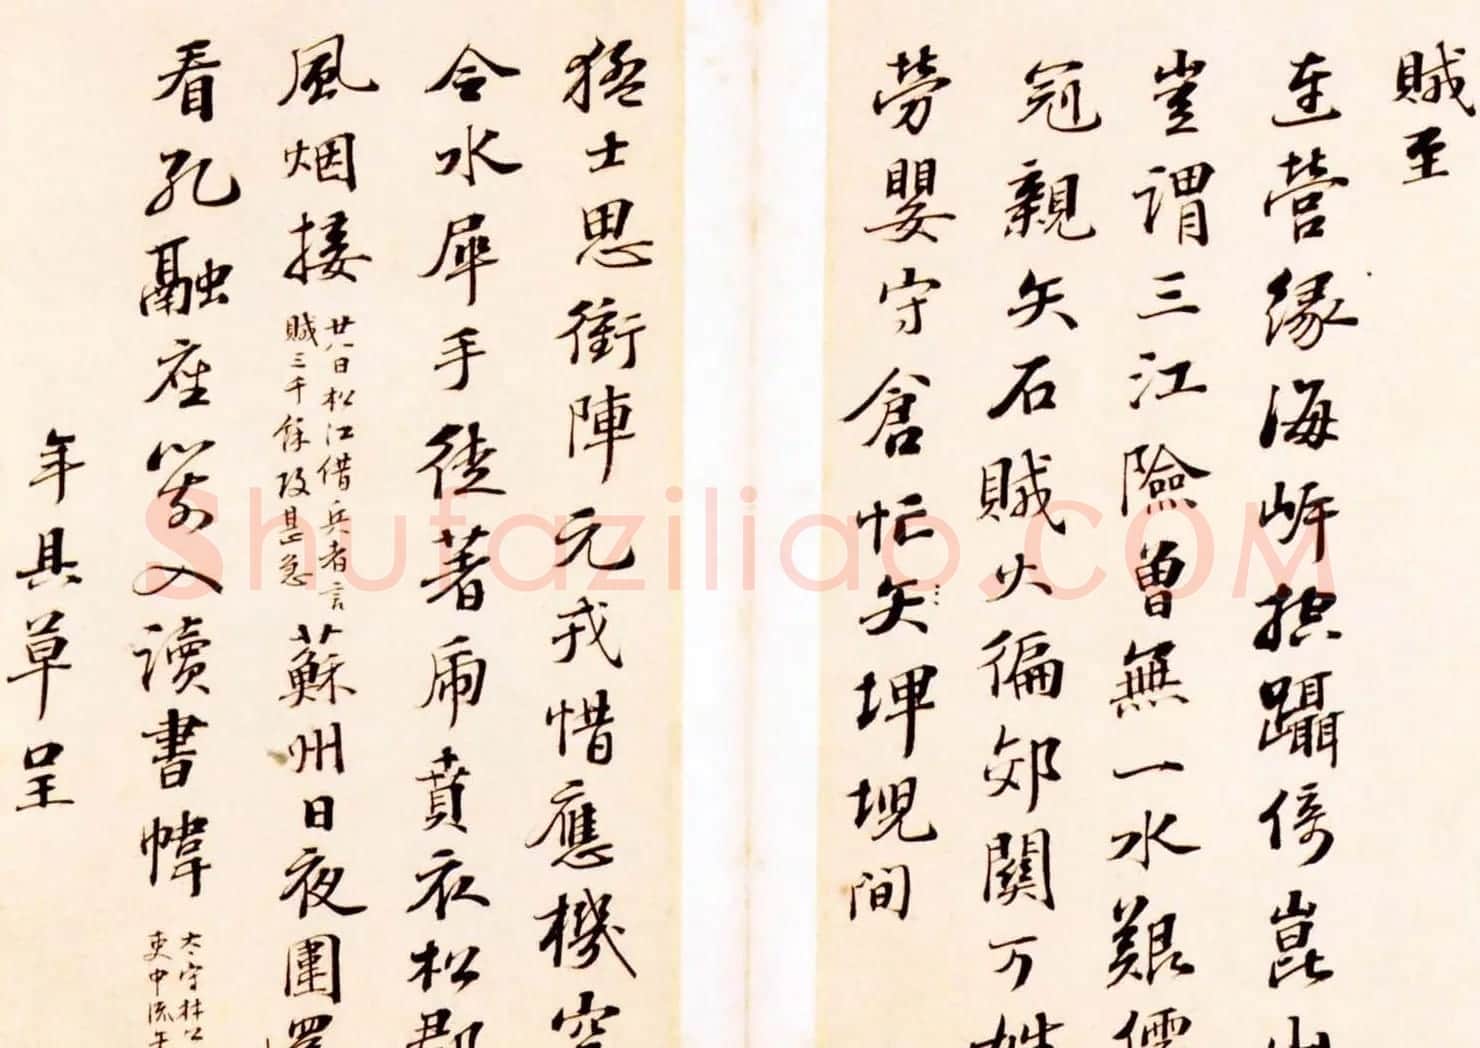 賊至
連營緣海岍躡傍崑山
豈謂三江險曾無一水艱儒
冠親矢石賊火徧郊關万姓
勞嬰守倉忙矢埤堄間
猛士思衝陣元戎惜應機空
令水犀手徒著虎賁衣松郡
風烟接廿八日松江借兵者言
賊三千餘攻甚急蘇州日夜圍
看孔融座箭入讀書幃太守林公
吏中流矢
年具草呈
Shufaziliao.COM